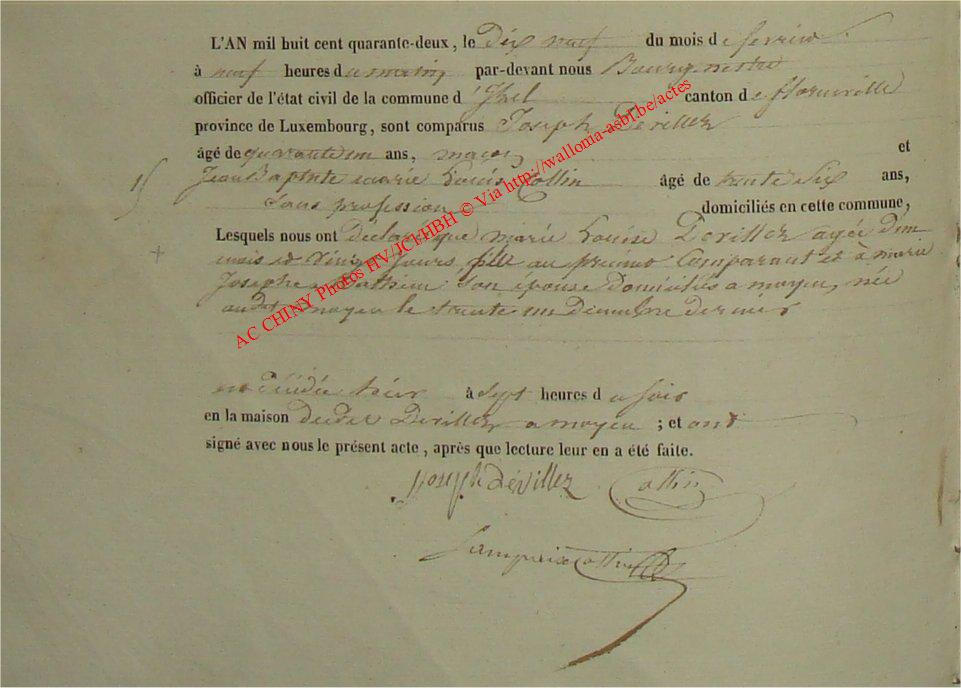 L'AN mil huit cent quarante-deux, le Dix neuf du mois de fevrier
à neuf heures du matin par-devant nous Bourgmestre
officier de l'état civil de la commune d'Izel canton de florenville
province de Luxembourg, sont comparus Joseph Devillez
âgé de quarante un ans, maçon, et
Jean Baptiste marie Louis Collin âgé de trente Six ans,
Sans profession domiciliés en cette commune,
Lesquels nous ont Déclaré que marie Louise Devillez agée D'un
mois et Vingt jours, fille au premier Comparant et à marie
Josephe Son épouse Domiciliés a moyen, née
audit moyen le trente un Décembre Dernier
est Décédée hier à Sept heures du soir
en la maison dudit Devillez a moyen ; et ont
signé avec nous le présent acte, après que lecture leur en a été faite.
Joseph Dévillez Collin
Collin
15
+
AC CHINY Photos HV/JCl/HBH © Via http://wallonia-asbl.be/actes